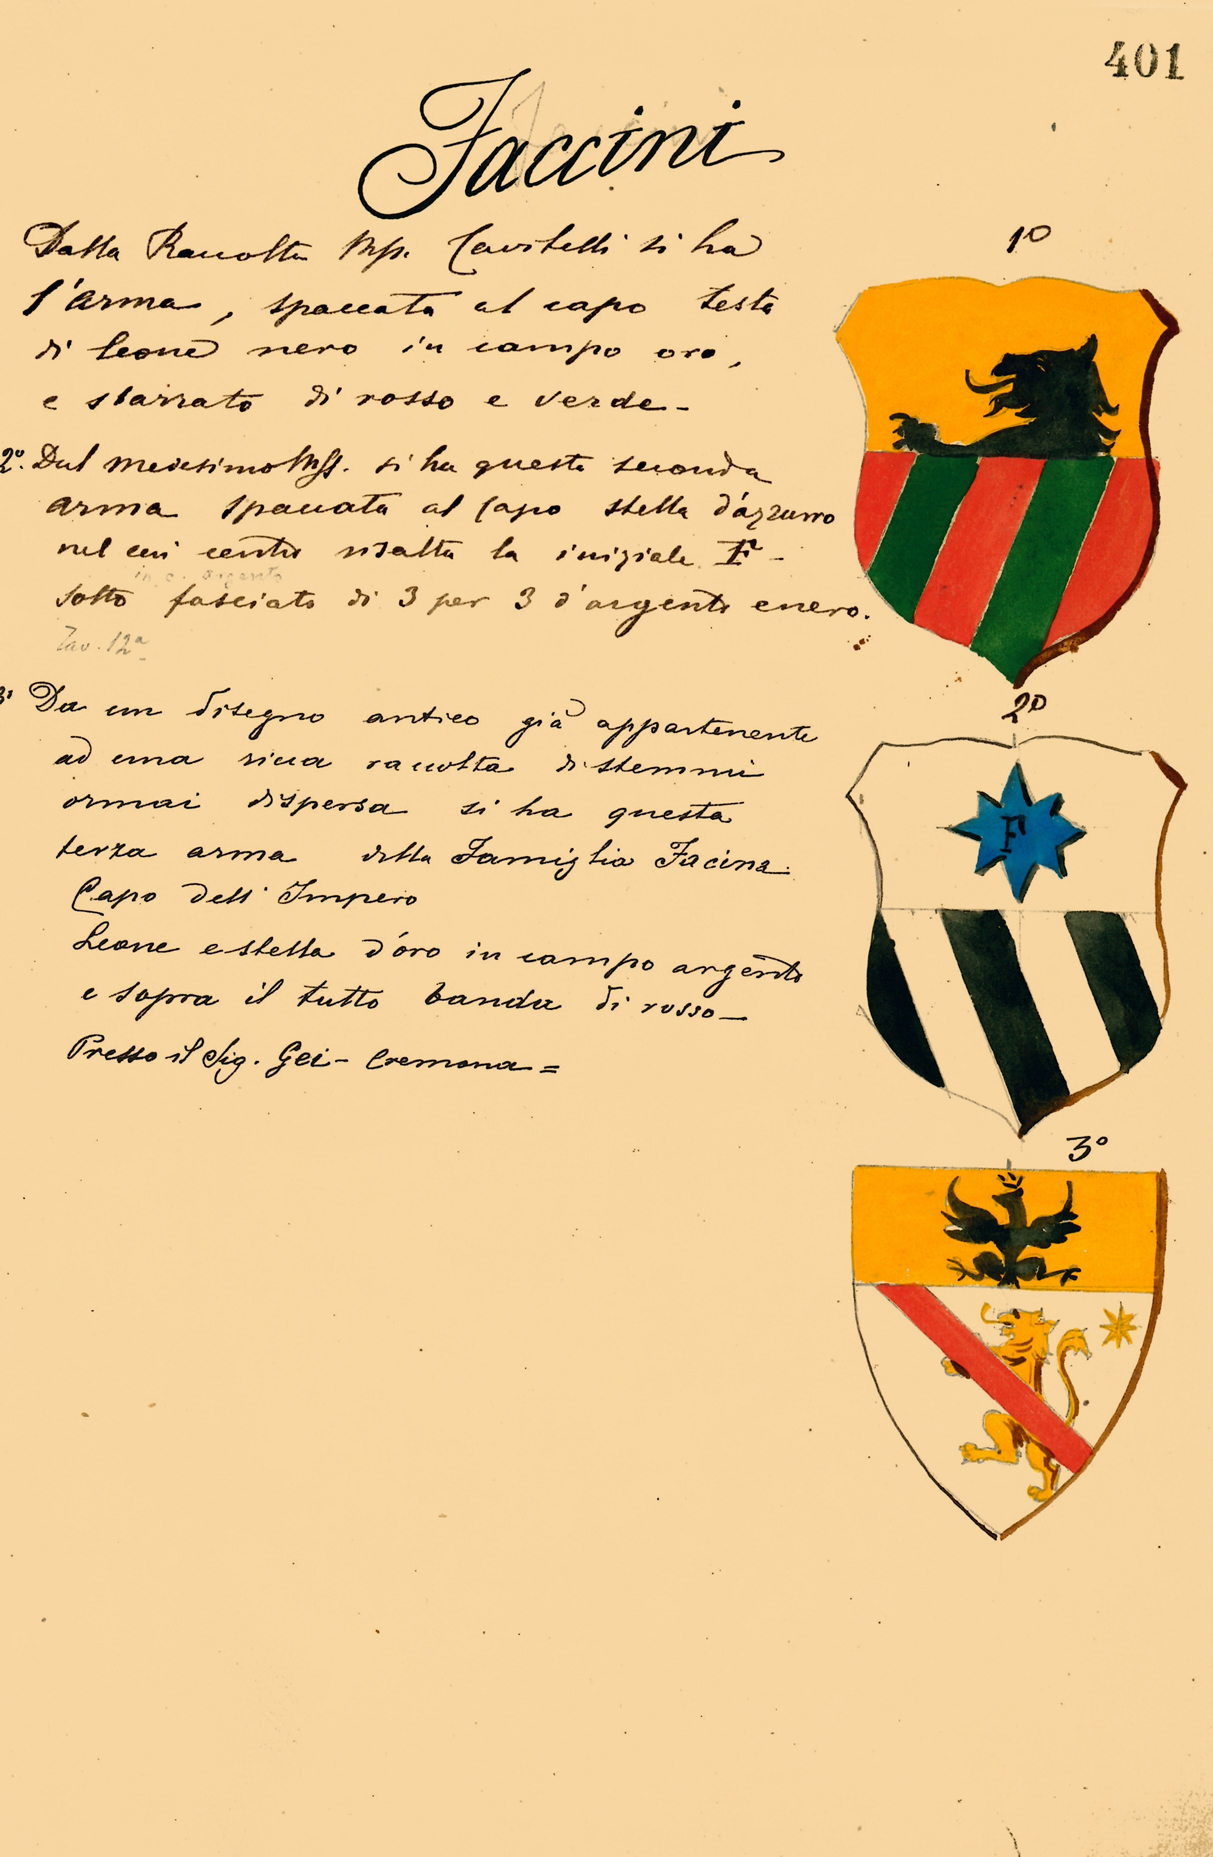 401
Faccini
Dalla Raccolta Mss. Cavitelli si ha
l'arma, spaccata al capo testa
di leone nero in campo oro,
e sbarrato di rosso e verde -
2º. Dal medesimo Mss. si ha questa seconda
arma spaccata al capo stella d'azzurro
nel cui centro risalta la iniziale F -
in c. argento
sotto fasciato di 3 per 3 d'argento e nero.
Tav. 12ª
3º Da un disegno antico già appartenente
ad una ricca raccolta di stemmi
ormai dispersa si ha questa
terza arma della Famiglia Facina.
Capo dell' Impero
Leone e stella d'oro in campo argento
e sopra il tutto banda di rosso -
Presso il Sig. Gei - Cremona =
1º
2º
F
3º